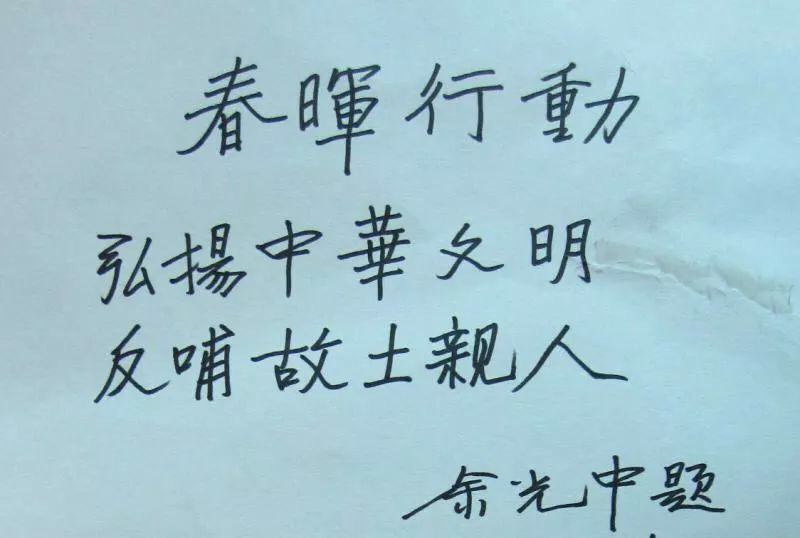 春暉行動
弘揚中華文明
反哺故土親人
余光中题